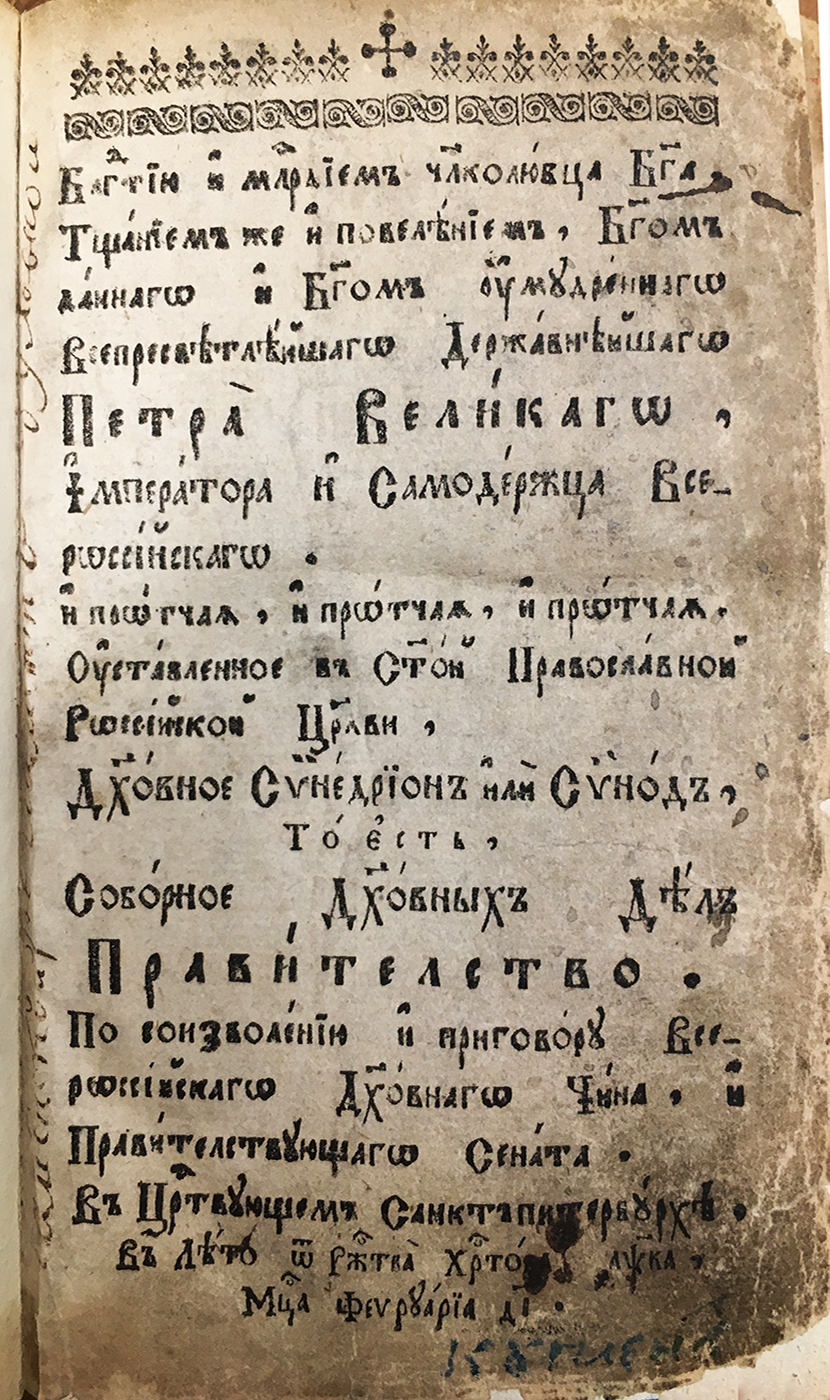 Бл҃гⷭ҇тїю и҆ млⷭ҇рдїемъ чл҃колю́бца Бг҃а,
Тща́нїемъ же и҆ повелѣ́нїемъ, Бг҃омъ
да́ннагѡ и҆ Бг҃омъ ᲂу҆мꙋ́дреннагѡ
Всепресвѣтлѣ́йшагѡ Держа́внѣйшагѡ
Петра̀ Вели́кагѡ,
І҆мпера́тора и҆ Самоде́ржца Все-
рѡссі́йскагѡ.
и҆ прѡ́тчаѧ, и҆ прѡ́тчаѧ, и҆ прѡ́тчаѧ.
Оу҆ста́вленное въ Ст҃о́й Правосла́вной
Рѡссі́йкой Цр҃кви,
Дх҃о́вное Сѷне́дрїонъ и҆лѝ Сѷно́дъ,
То́ є҆сть,
Собо́рное Дх҃о́вныхъ Дѣ́лъ
Прави́телство.
По соизволе́нїю и҆ пригово́рꙋ Все-
рѡссі́йскагѡ Дх҃о́внагѡ Чи́на, и҆
Прави́телствꙋющагѡ Сена́та.
Въ Црⷭ҇твꙋющемъ Санктъпитербꙋ́рхѣ,
въ Лѣ́то ѿ ржⷭ҇тва̀ Хрⷭ҇то́ва ҂аѱка,
Мцⷭ҇а Феврꙋа́рїа д҃і.